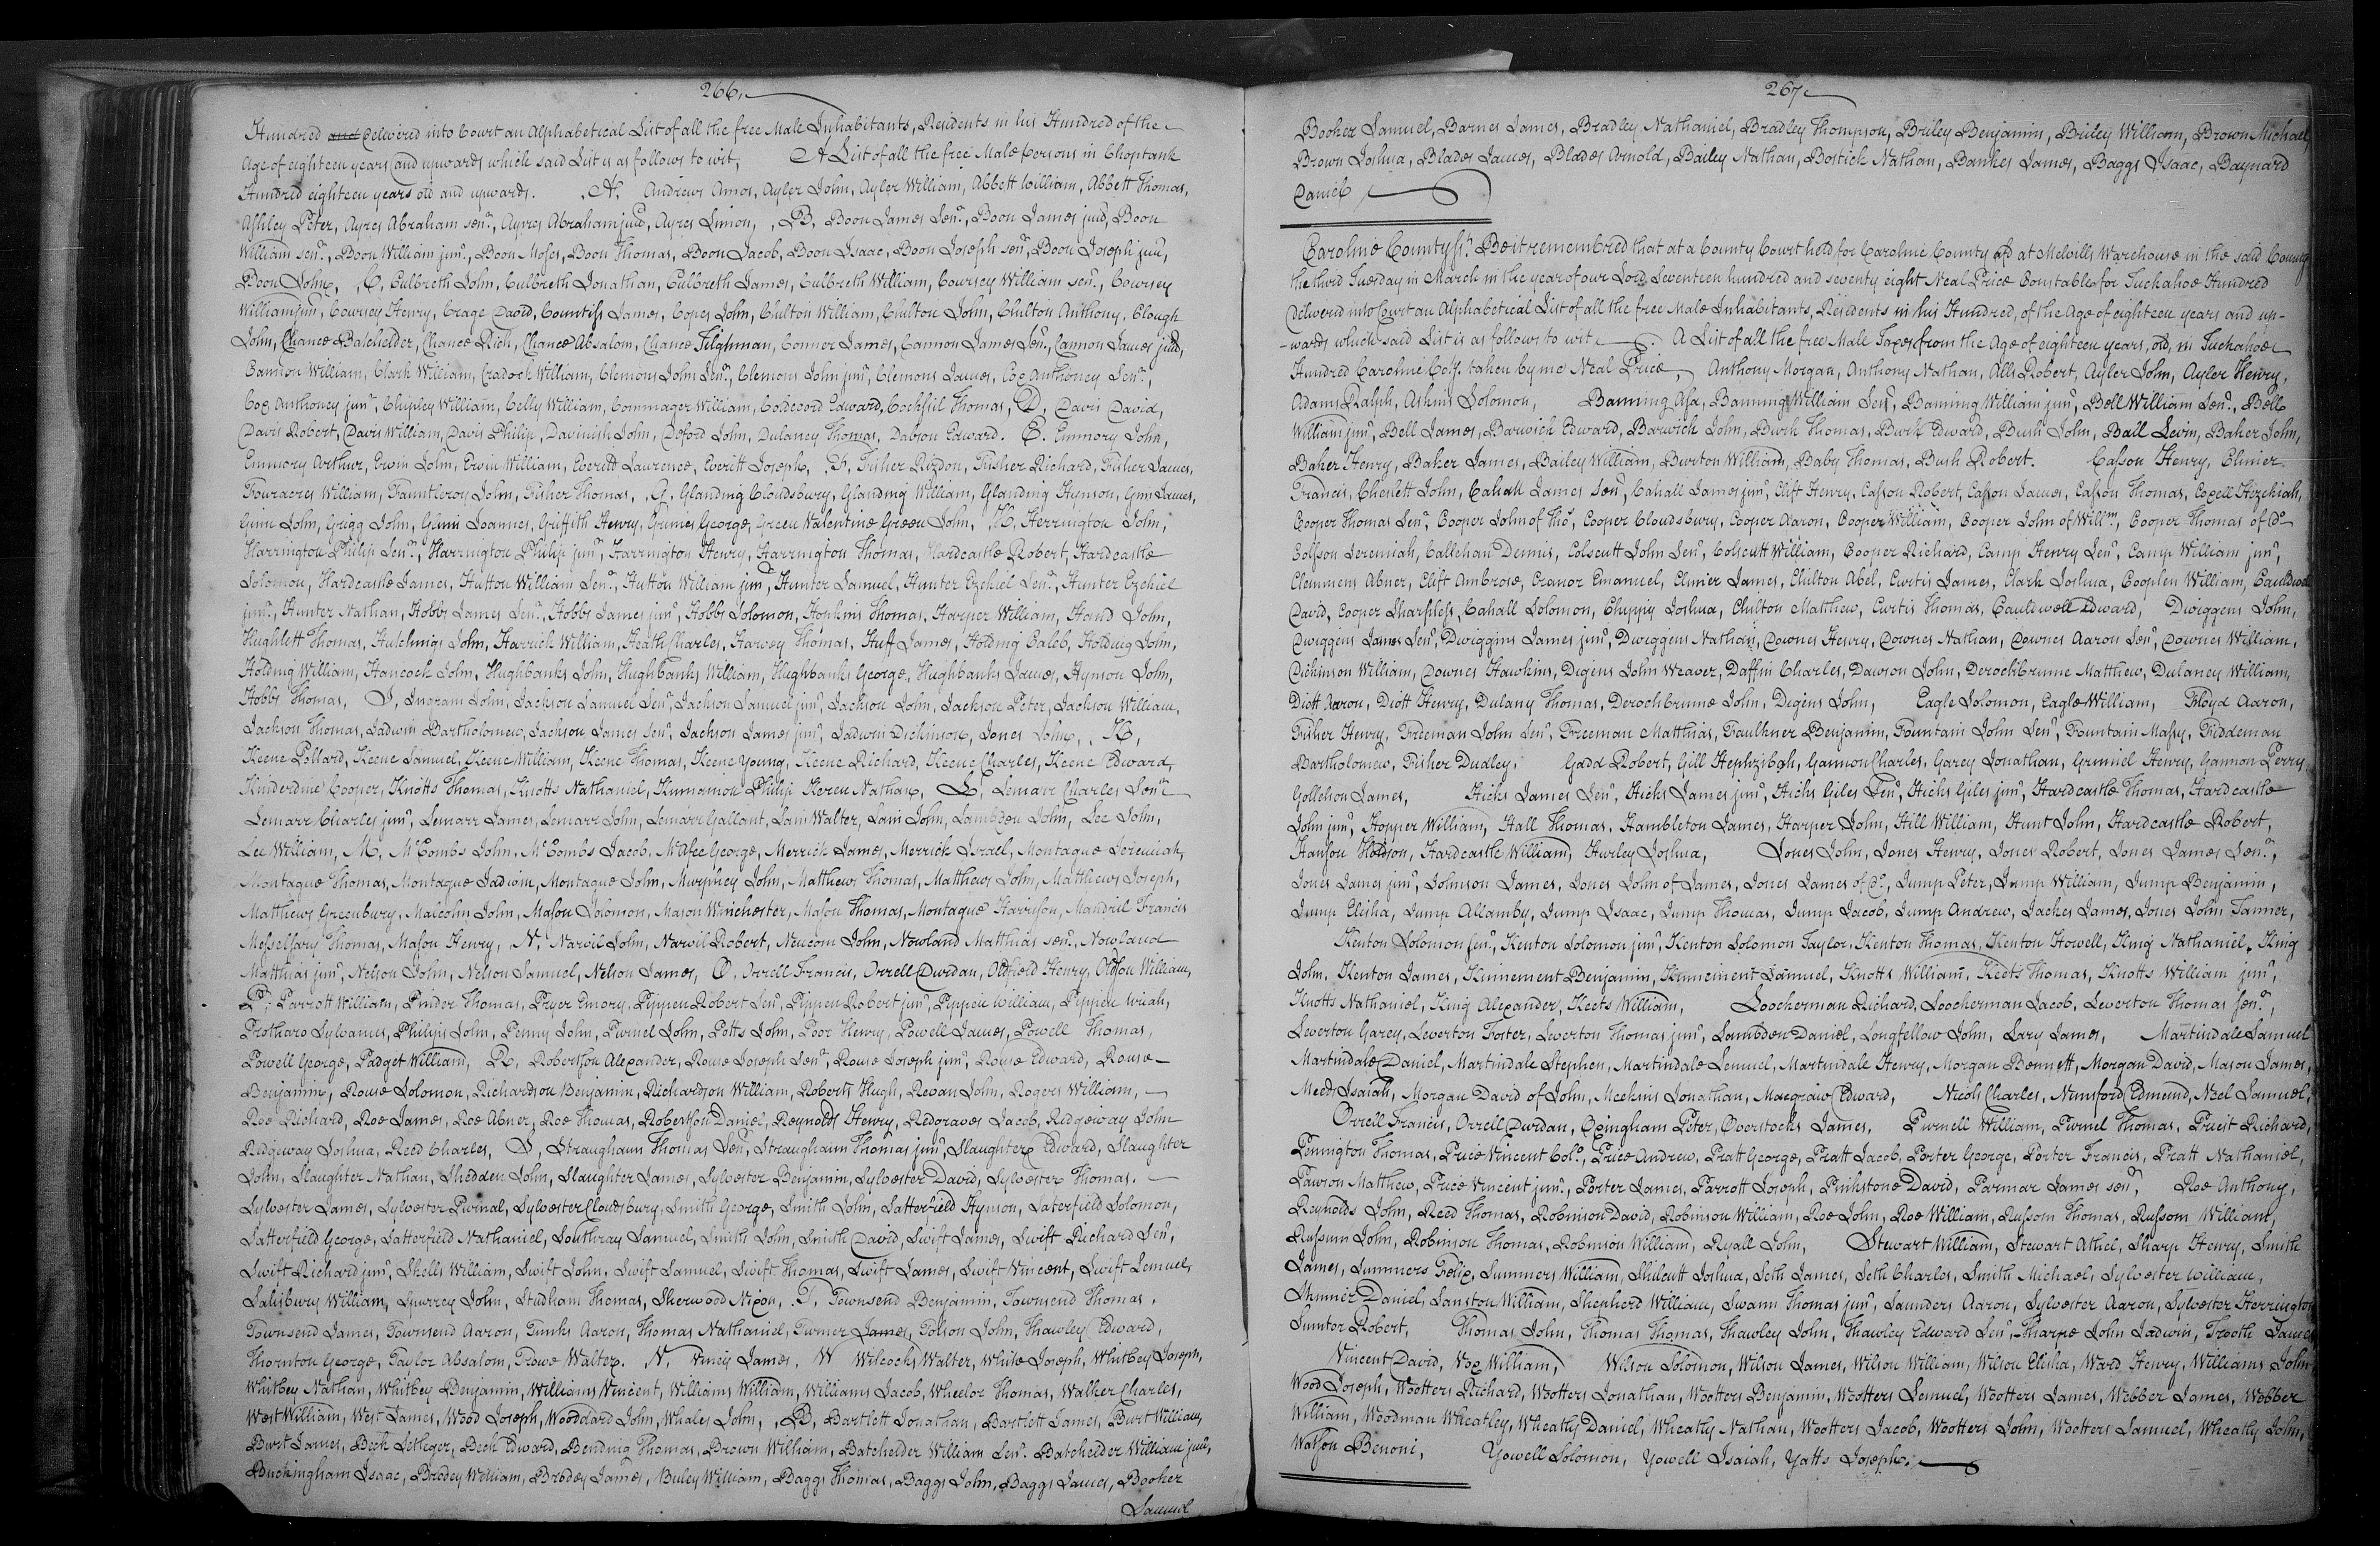 266,
Hundred and Delivered into Court an Alphabetical List of all the free Male Inhabitants, Residents in his Hundred of the
Age of eighteen years and upwards which said List is as follows to wit, A List of all the free Male persons in Choptank
Hundred eighteen years old and upwards. A, Andrews Amos, Ayler John, Ayler William, Abbett William, Abbett Thomas,
Ashley Peter, Ayres Abraham senr., Ayres Abraham junr, Ayres Simon, B, Boon James Senr., Boon James junr, Boon
William senr., Boon William junr., Boon Moses, Boon Thomas, Boon Jacob, Boon Isaac, Boon Joseph senr, Boon Joseph junr,
Boon John, C, Culbreth John, Culbreth Jonathan, Culbreth James, Culbreth William, Coursey William senr, Coursey
William junr, Coursey Henry, Crage David, Countiss James, Copes John, Chilton William, Chilton John, Chilton Anthony, Clough
John, Chance Batchelder, Chance Rich, Chance Absalom, Chance Tilghman, Conner James, Cannon James Senr., Cannon James junr,
William, Clark William, Cradock William, Clemons John Senr., Clemons John junr, Clemons James, Cox Anthoney Senr.,
Cox Anthoney junr, Chipley William, Celly William, Commager William, Coldecord Edward, Thomas, D, Davis David,
Davis Robert, Davis William, Davis Philip, Davinish John, Deford John, Dulaney Thomas, Dabson Edward. E. Emmory John,
Emmory Arthur, Erwin John, Erwin William, Everett Laurence, Everitt Joseph, F, Fisher Rizdon, Fisher Richard, Fisher James,
Fouracres William, Fauntleroy John, Fisher Thomas, G, Glanding Cloudsbury, Glanding William, Glanding Hynson, Ginn James,
Ginn John, Grigg John, Ginn Joannes, Griffith Henry, Grimes George, Green Valentine Green John, H, Herrington John,
Harrington Philip Senr., Harrington Philip junr, Harrington Henry, Harrington Thomas, Hardcastle Robert, Hardcastle
Solomon, Hardcastle James, Hutton William Senr., Hutton William junr, Hunter Samuel, Hunter Ezekiel Senr., Hunter Ezekiel
junr., Hunter Nathan, Hobbs James Senr, Hobbs James junr, Hobbs Solomon, Hopkins Thomas, Harper William, Hand John,
Hughlett Thomas, Hutchings John, Harrick William, Heath Charles, Harvey Thomas, Huff James, Holding Caleb, Holding John,
Holding William, Hancock John, Hughbanks John, Hughbanks William, Hughbanks George, Hughbanks James, Hynson John,
Hobbs Thomas, I, Ingram John, Jackson Samuel Senr, Jackson Samuel junr, Jackson John, Jackson Peter, Jackson William,
Jackson Thomas, Jadwin Bartholomew, Jackson James Senr, Jackson James junr, Jadwin Dickinson, Jones John, K,
Keene Pollard, Keene Samuel, Keene William, Keene Thomas, Keene Young, Keene Richard, Keene Charles, Keene Edward,
Kinderdine Cooper, Knotts Thomas, Knotts Nathaniel, Kinnamon Philip Keren Nathan, L, Lemarr Charles Senr
Lemarr Charles junr, Lemarr James, Lemarr John, Lemarr Gallant, Lain Walter, Lain John, Lambden John, Lee John,
Lee William, M, McCombs John, McCombs Jacob, McAfee George, Merrick James, Merrick Israel, Montague Jeremiah,
Montague Thomas, Montague Jadwin, Montague John, Murphey John, Matthews Thomas, Matthews John, Matthews Joseph,
Matthews Greenbury, Malcolm John, Mason Solomon, Mason Winchester, Mason Thomas, Montague Harrison, Mandril Francis
Messelfary Thomas, Mason Henry, N, Narvil John, Narvil Robert, Neucom John, Nowland Matthias senr, Nowland
Matthias junr, Nelson John, Nelson Samuel, Nelson James, O, Orrell Francis, Orrell Durdan, Oldfield Henry, Oldson William,
P, Parrott William, Pinder Thomas, Pryer Emory, Pippen Robert Senr, Pippen Robert junr, Pippen William, Pippen Uriah,
Protharo Sylvanus, Philips John, Penny John, Purnel John, Potts John, Poor Henry, Powell James, Powell Thomas,
Powell George, Padget William, R, Robertson Alexander, Rouse Joseph Senr, Rouse Joseph junr, Rouse Edward, Rouse
Benjamin, Rouse Solomon, Richardson Benjamin, Richardson William, Roberts Hugh, Revan John, Rogers William,
Roe Richard, Roe James, Roe Abner, Roe Thomas, Robertson Daniel, Reynolds Henry, Redgraves Jacob, Ridgeway John
Ridgeway Joshua, Reed Charles, S, Straughann Thomas Senr, Straughann Thomas junr, Slaughter Edward, Slaughter
John, Slaughter Nathan, Shedden John, Slaughter James, Sylvester Benjamin, Sylvester David, Sylvester Thomas.
Sylvester James, Sylvester Purnal, Sylvester Cloudsbury, Smith George, Smith John, Satterfield Hynson, Saterfield Solomon,
Satterfield George, Satterfield Nathaniel, Southray Samuel, Smith John, Smith David, Swift James, Swift Richard Senr,
Swift Richard junr, Skells William, Swift John, Swift Samuel, Swift Thomas, Swift James, Swift Vincent, Swift Lemuel,
Salisbury William, Spurrey John, Studham Thomas, Sherwood Nixon, T, Townsend Benjamin, Townsend Thomas,
Townsend James, Townsend Aaron, Tunks Aaron, Thomas Nathaniel, Turner James, Tolson John, Thawley Edward,
Thornton George, Taylor Absalom, Trowe Walter. V, Viney James, W Wilcocks Walter, White Joseph, Whitbey Joseph,
Whitbey Nathan, Whitbey Benjamin, Williams Vincent, Williams William, Williams Jacob, Wheeler Thomas, Walker Charles,
West William, West James, Wood Joseph, Wooddard John, Whales John, B, Bartlett Jonathan, Bartlett James, Burt William,
Burt James, Beck Letheger, Beck Edward, Bending Thomas, Brown William, Batchelder William Senr. Batchelder William junr,
Buckingham Isaac, Bradey William, Bradey James, Buley William, Baggs Thomas, Baggs John, Baggs James, Booker
Samuel
267
Booker Samuel, Barnes James, Bradley Nathaniel, Bradley Thompson, Briley Benjamin, Briley William, Brown Michael,
Brown Joshua, Blades James, Blades Arnold, Bailey Nathan, Bostick Nathan, Bankes James, Baggs Isaac, Baynard
Daniel
Caroline County Sst. Be it remembred that at a County Court held for Caroline County at Melvills Warehouse in the said County
the third Tuesday in March in the year of our Lord Seventeen hundred and seventy eight Neal Price Constable for Tuckahoe Hundred
Delivered into Court an Alphabetical List of all the free Male Inhabitants, Residents in his Hundred, of the Age of eighteen years and up-
-wards which said List is as follows to wit. A List of all the free Male Taxes from the Age of eighteen years, old, in Tuckahoe
Hundred Caroline Coty. taken by me Neal Price, Anthony Morgan, Anthony Nathan, Alls Robert, Ayler John, Ayler Henry,
Adams Ralph, Askins Solomon, Banning Asa, Banning William Senr, Banning William junr, Bell William Senr., Bell
William junr, Bell James, Barwick Edward, Barwick John, Burk Thomas, Burk Edward, Bush John, Ball Levin, Baker John,
Baker Henry, Baker James, Bailey William, Burton William, Baby Thomas, Bush Robert. Casson Henry, Clmier
Francis, Cheslett John, Cahall James Senr, Cahall James junr, Clift Henry, Casson Robert, Casson James, Casson Thomas, Coxell Hezekiah,
Cooper Thomas Senr, Cooper John of Thos, Cooper Cloudsbury, Cooper Aaron, Cooper William, Cooper John of Willm., Cooper Thomas of Do
Colson Jeremiah, Callehan Dennis, Colscutt John Senr, Colscutt William, Cooper Richard, Camp Henry Senr, Camp William junr,
Clemmens Abner, Clift Ambrose, Cranor Emanuel, Clmier James, Chilton Abel, Curtis James, Clark Joshua, Cooplen William, Cauldwell
David, Cooper Sharpless, Cahall Solomon, Chippy Joshua, Chilton Matthew, Curtis Thomas, Cauldwell Edward, Dwiggens John,
Dwiggens James Senr, Dwiggins James junr, Dwiggens Nathan, Downes Henry, Downes Nathan, Downes Aaron Senr, Downes William,
Dickinson William, Downes Hawkins, Digens John Weaver, Daffin Charles, Dawson John, Derochbrunne Matthew, Dulaney William,
Diott Aaron, Diott Henry, Dulany Thomas, Derochbrunne John, Digens John, Eagle Solomon, Eagle William, Floyd Aaron,
Fisher Henry, Freeman John Senr, Freeman Matthias, Faulkner Benjamin, Fountain John Senr, Fountain Massy, Fiddeman
Bartholomew, Fisher Dudley, Gadd Robert, Gill Hephzibah, Gannon Charles, Garey Jonathan, Grinnel Henry, Gannon Perry,
Gollehon James, Hicks James Senr, Hicks James junr, Hicks Giles Senr, Hicks Giles junr, Hardcastle Thomas, Hardcastle
John junr, Hopper William, Hall Thomas, Hambleton James, Harper John, Hill William, Hunt John, Hardcastle Robert,
Hanson, Hardcastle William, Hurley Joshua, Jones John, Jones Henry, Jones Robert, Jones James Senr.,
Jones James junr, Johnson James, Jones John of James, Jones James of Do., Jump Peter, Jump William, Jump Benjamin,
Jump Elisha, Jump Allamby, Jump Isaac, Jump Thomas, Jump Jacob, Jump Andrew, Jackes James, Jones John Tanner,
Kenton Solomon Senr, Kenton Solomon junr, Kenton Solomon Taylor, Kenton Thomas, Kenton Howell, King Nathaniel, King
John, Kenton James, Kinnement Benjamin, Kinnement Samuel, Knotts William, Keets Thomas, Knotts William junr,
Knotts Nathaniel, King Alexander, Keets William, Loockerman Richard, Loockerman Jacob, Leverton Thomas Senr.,
Leverton Garey, Leverton Foster, Leverton Thomas junr, Lambden Daniel, Longfellow John, Lary James, Martindale Samuel
Martindale Daniel, Martindale Stephen, Martindale Lemuel, Martindale Henry, Morgan Bennett, Morgan David, Mason James,
Meeds Isaiah, Morgan David of John, Meekins Jonathan, Macgraw Edward, Nicols Charles, Numford Edmund, Neel Samuel,
Orrell Francis, Orrell Durdan, Oxingham Peter, Overstocks James, Purnell William, Purnel Thomas, Priest Richard,
Pinnington Thomas, Price Vincent Colo., Price Andrew, Pratt George, Pratt Jacob, Porter George, Porter Francis, Pratt Nathaniel,
Pawson Matthew, Price Vincent junr., Porter James, Parrott Joseph, Pinkstone David, Parmar James senr, Roe Anthony,
Reynolds John, Reed Thomas, Robinson David, Robinson William, Roe John, Roe William, Russom Thomas, Russom William,
Russum John, Robinson Thomas, Robinson William, Ryall John, Stewart William, Stewart Athel, Sharp Henry, Smith
James, Summers Felix, Summers William, Shilcutt Joshua, Seth James, Seth Charles, Smith Michael, Sylvester William,
Skinner Daniel, Sanston William, Shepherd William, Swann Thomas junr, Saunders Aaron, Sylvester Aaron, Sylvester Herrington
Sumtor Robert, Thomas John, Thomas Thomas, Thawley John, Thawley Edward Senr, Tharpe John Jadwin, Trooth James
Vincent David, Vox William, Wilson Solomon, Wilson James, Wilson William, Wilson Elisha, Ward Henry, Williams John
Wood Joseph, Wootters Richard, Wootters Jonathan, Wootters Benjamin, Wootters Lemuel, Wootters James, Webber James, Webber
William, Woodman Wheatley, Wheatly Daniel, Wheatly Nathan, Wootters Jacob, Wootters John, Wootters Samuel, Wheatly John,
Watson Benoni, Yowell Solomon, Yowell Isaiah, Yatts Joseph.